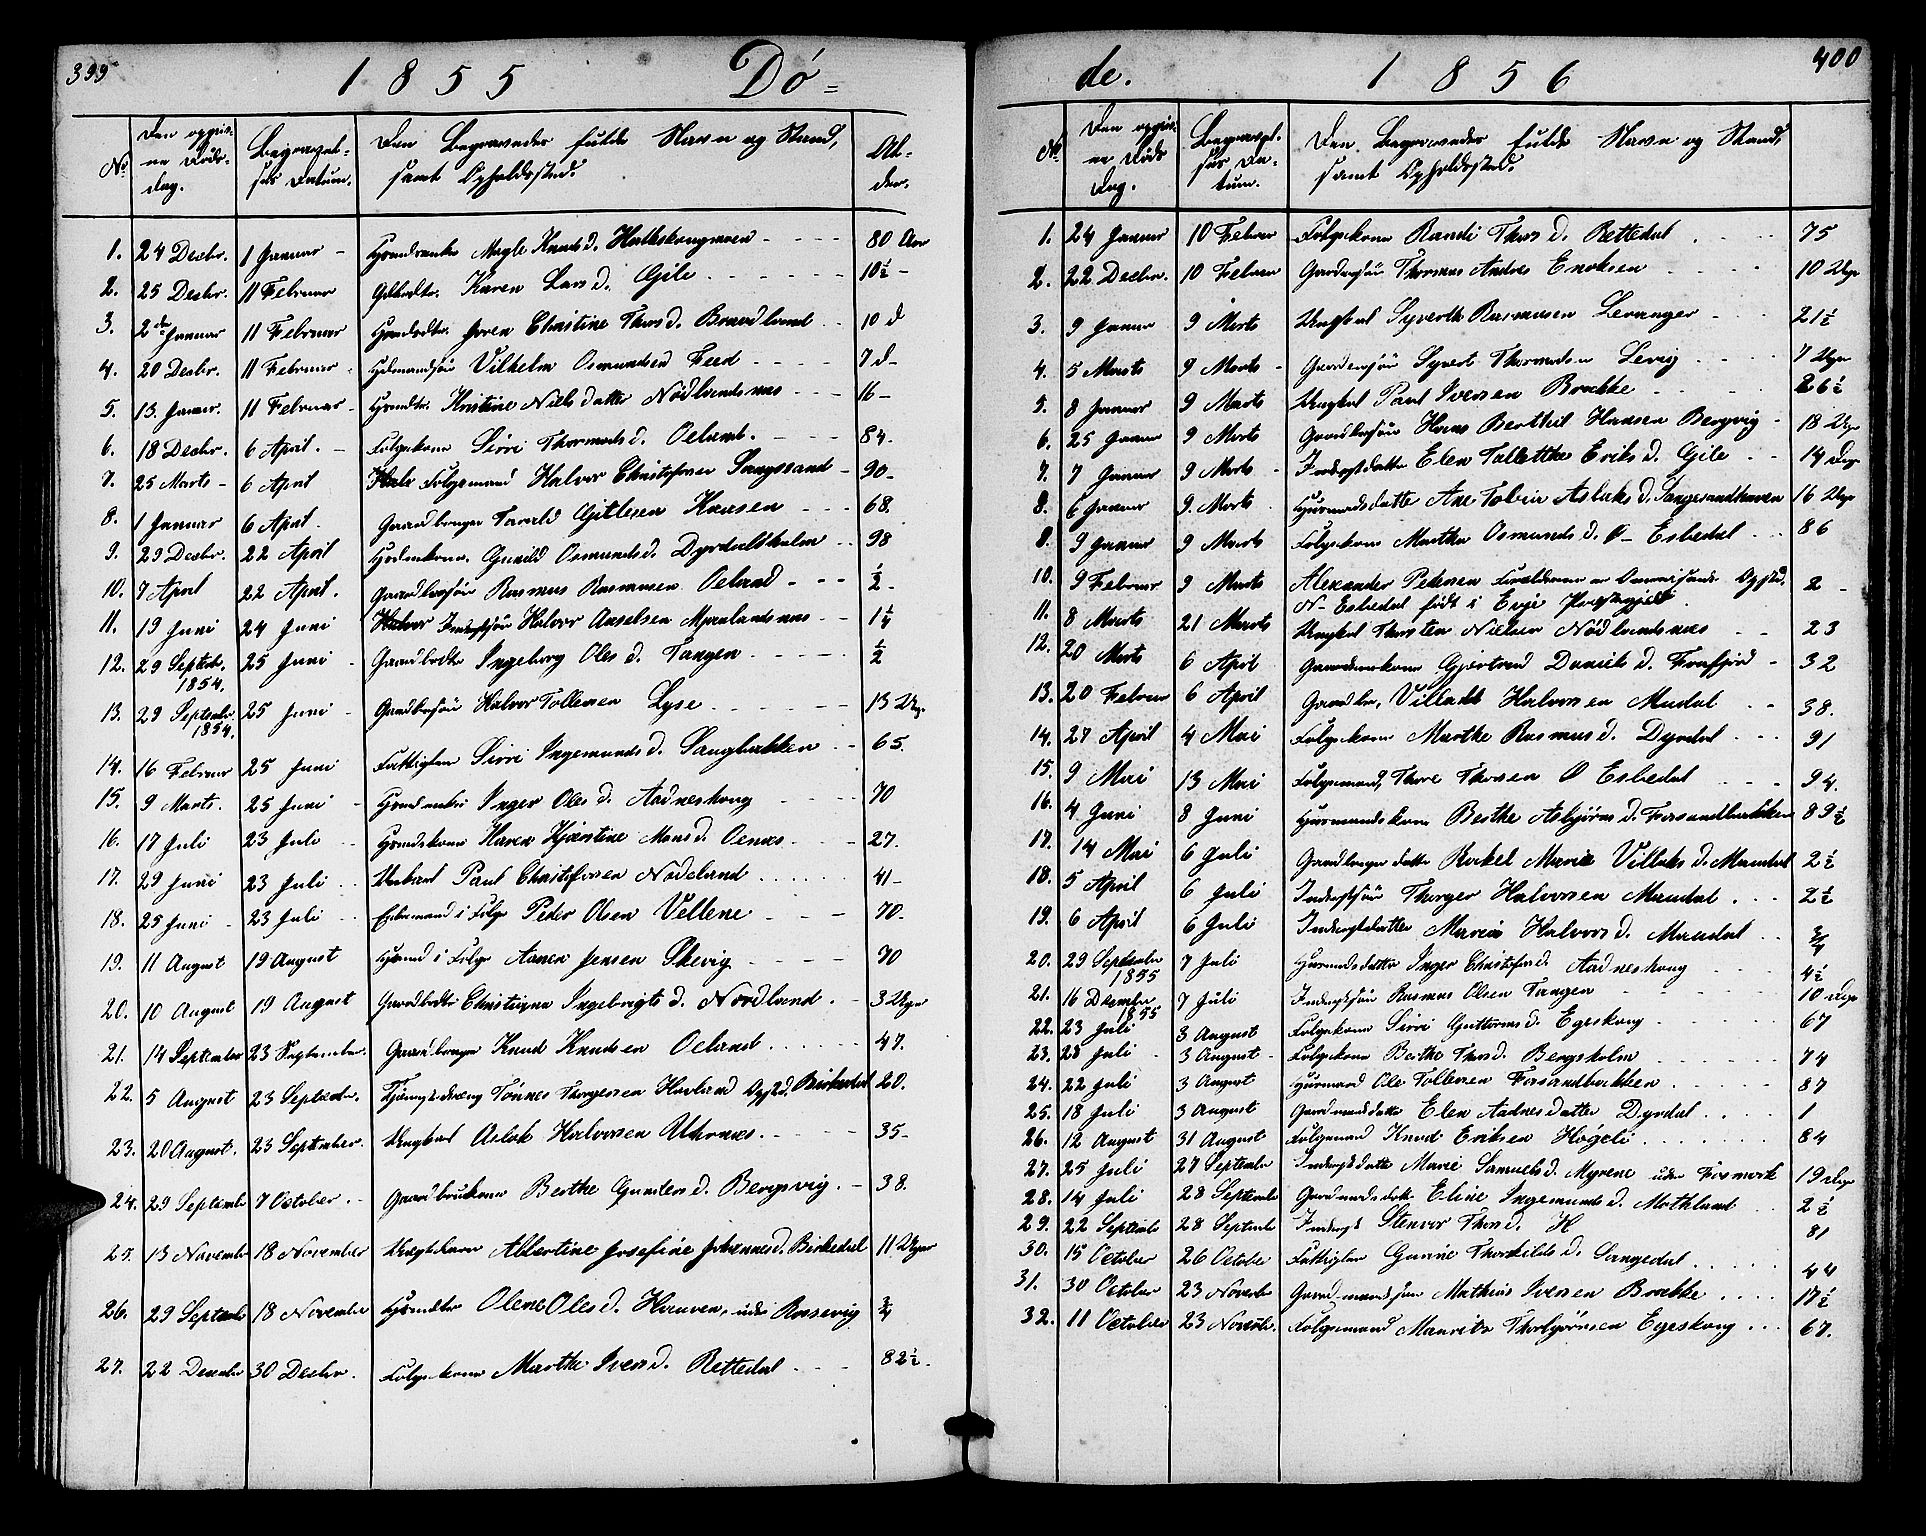 399
1855 Dö=
No
Den opgivne Døds-dag.
Begravel-ses Datum.
Den Begravedes fulde Navn og Stand, samt Opholdssted.
Al-der.
1. 24 Decbr. 1 Januar - Magle Knuds d. 80 Aar
2. 25 Decbr. 11 Februar Karen Lars d. Gile 10½ -
3. 2den Januar 11 Februar Christine Thors d. 10 d
4. 20 Decbr. 11 Februar - Vilhelm Osmundsen 7 d -
5. 13. Januar. 11 Februar - Kristine Nielsdatter Nödlandsnæs 16 -
6. 18 Decbr. 6 April. - Folgekone Sirri Thormods d. Oeland. 84.
7. 25 Marts - 6 April Folgemand Halvor Christofersen Sangesand - 90 -
8. 1 Januar 6 April. Gaardbruger Gitlesen 68.
9. 29 Decbr. 22 April Gunild Osmunds d. 98
10. 7 April 22 April. Gaardbrsön Rasmus Rasmusen Oeland - ½ -
11. 19 Juni 24 Juni Halvor Aanselsen Mjaalandsnæs 1¼
12. 29 Septebr. 1854. 25 Juni - Ingeborg Oles d. Tangen ½
13. 29 Septembr. 1854. 25 Juni - Gaardbrsön Halvor Tollensen Lyse 13 Uger
14. 16 Februar 25 Juni Fattiglem Sirri Ingemunds d. Sangbakken 65.
15. 9 Marts. 25 Juni - Inger Oles d. Aadneskoug 70
16. 17 Juli 23 Juli Karen Kjærstine Mons d. Oenæs. 27.
17. 29 Juni 23 Juli Paul Christofersen Nödeland 41 -
18. 25 Juni - 23 Juli Enkemand i Folge Peder Olsen Vellene 70 -
19. 11 August 19 August Huusmand i Folge Aanen Jensen Skevig 70
20. 10 August 19 August Ingebrigts d. Nordland. 3 Uger
21. 14 September 23 September. Gaardbruger Knud Knudsen Oeland 47.
22. 5 August 23 Septebr. Tønnes Thorgersen Havland Opfsted. Birkedal 20.
23. 20 August. 23 September. Ungkarl Aslak Halvorsen 35 -
24. 29 Septembr 7 October. Gaardbrukone Berthe Gunders d. Bergsvig. - 38.
25. 13 Novembr 18 November Albertine Josefine Johannes d. Birkedal 11 Uger
26. 29 Septembr 18 November Olene Oles d. Haaven, Rossevig ¾
27. 22 December 30 Decbr. Folgekone Marthe Ivers d. Rettedal 82½ -
de. 1856
400
No
Den opgiv-ne Døds Dag.
Begravel-ses Da-tum.
Den Begravedes fulde Navn og Stand, samt Opholdssted.
1. 24 Januar 10 Februar Folgekone Randi Thors d. Rettedal 75
2. 22 Decbr. 10 Februar Gaardbrsön Thomas Andreas Enoksen 10 Uger
3. 9 Januar 9 Marts Ungkarl Syverth Rasmussen Levanger 21½
4. 5 Marts 9 Marts - Gaardmsön Syvert Thormodsen Levig 7 Uger
5. 8 Januar 9 Marts Ungkarl Paul Iversen Brække 26½
6. 25 Januar 9 Marts Gaardbrsön Hans Berthel Hansen Bergsvig - 18 Uger
7. 7 Januar 9 Marts - Inderstdatter Elen Tallethe Eriks d. Gile 14 Dage
8. 6 Januar 9. Marts Huusmandsdatter Ane Tobia Aslaks d. Sangesandhaven 16 Uger
8. 9 Januar 9 Marts Folgekone Marthe Osmunds d. Ø - Esbedal 86
10. 9 Februar 9 Marts Alexander Petersen Forældrene er Opfsted.
N - Esbedal født i Evje Præstegjeld. 2 -
11. 8 Marts 21 Marts Ungkarl Thorsten Nielsen Nödlandsnæs 23
12. 20 Marts 6 April Gaardmkone Gjertrud Daniels d. Fossfjord - 32
13. 20 Februar 6 April Gaardbr. Villads Halvorsen Maudal 38.
14. 27 April 4 Mai Folgekone Marthe Rasmus d. Dyrdal 91
15. 9 Mai 13 Mai Folgemand, Thore Thorsen Ø Esbedal 94.
16. 4 Juni 8 Juni Huusmandskone Berthe Asbjörns d. Forsandbakken 89½
17. 14 Mai 6 Juli Gaardbruger datter Rakel Maria Villaks d. Maudal 2½
18. 5 April 6 Juli Inderstsön Thorger Halvorsen Maudal 2½
19. 6 April 6 Juli Inderstdatter Maria Halvors d. Maudal ¾
20. 29 September 1855 7 Juli Huusmdsdatter Inger Christofers d. Aadneskoug 4½
21. 16 December 1855 7 Juli Inderstsön Rasmus Olsen Tangen 10 Uger
22. 23 Juli 3 August Folgekone Sirri Guttorms d. Egeskoug 67
23. 28 Juli - 3 August - Folgekone Berthe Thors d. Bergsholm 74
24. 22 Juli 3 August Huusmand Ole Tollensen Forsandbakken 87
25. 18 Juli 3 August Gaardmandsdatter Elen Aadnesdatter Dyrdal 1
26. 12 August 31 August Folgemand Knud Eriksen Høgeli 84
27. 25 Juli 27 Septembr Inderstdatter Marie Samuels d. Myrene uden Fosmark 19 Uger
28. 14 Juli 28 Septembr Gaardmandsdatter Eline Ingemunds d. Mæthland 2½
29. 22 Septembr 28 Septembr Inderst Stenvor Thors d. H 81
30. 15 October 26 October Fattiglem Gunne Thorkilds d. Sangedal 44
31. 30 October 23 Novembr Gaardmandsön Mathias Iversen Brække 17½
32. 11 October 23 Novebr. Folgemand Maurits Thorbjörnsen Egeskoug 67.